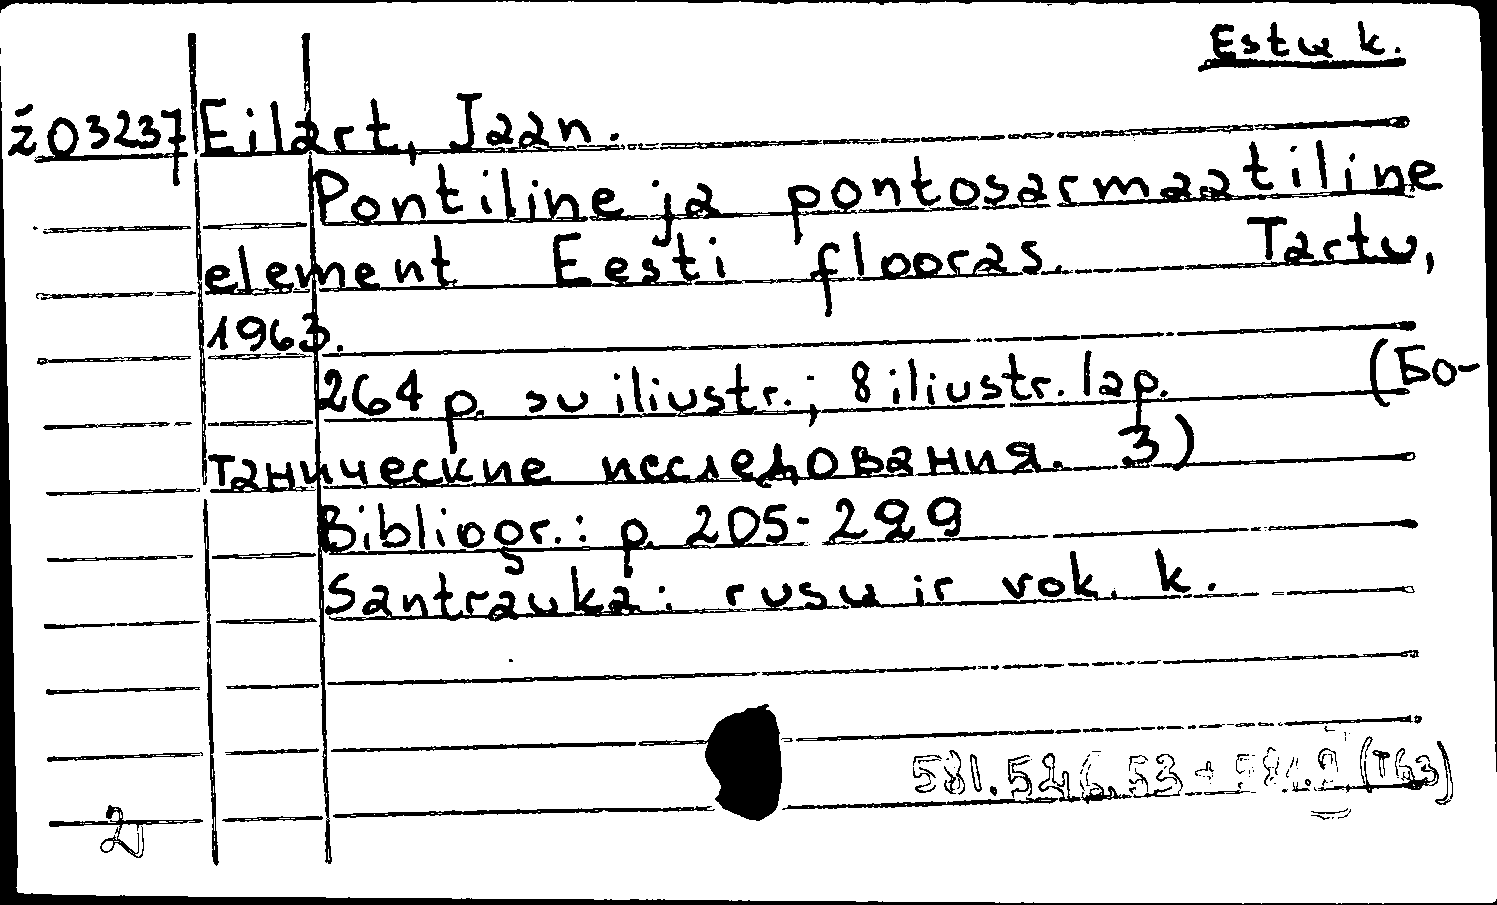 Estų k.
ž03237 Eilart, Jaan.
Pontiline ja pontosarmaatiline
element Eestiflooras. Tartu,
1963.
264 p. su iliustr.; 8 iliustr. lap. (Бо-
танические исследования. 3)
Bibliogr.: p. 205-229
Santrauka: rusų ir vok. k.
581.526.53+581.9(Т63)
2